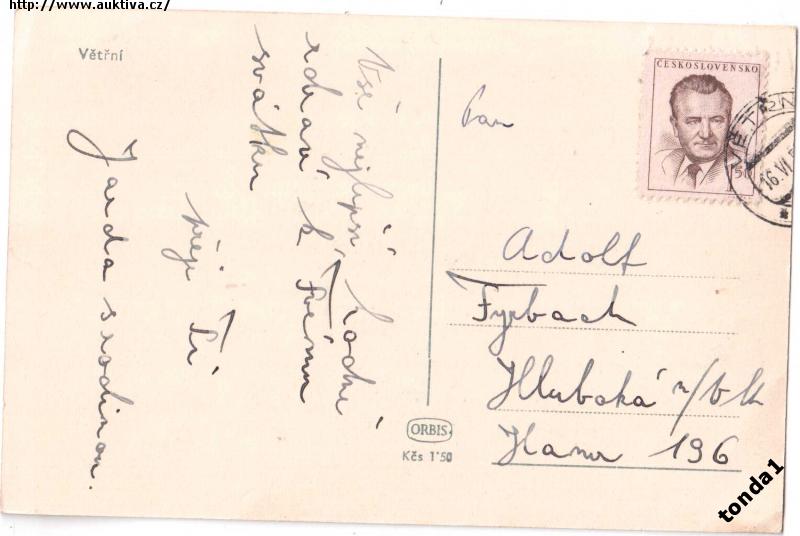 http://www.auktiva.cz/
Větřní
Vše nejlepší, hodně
zdraví k Tvému
svátku
přeje Ti
Jarda s rodinou.
ČESKOSLOVENSKO
1,50
VĚTŘNÍ
16.VI.5
Pan
Adolf
Fyrbach
Hluboká n/Vlt
Hamr 196
ORBIS
Kčs 1'50
tonda1